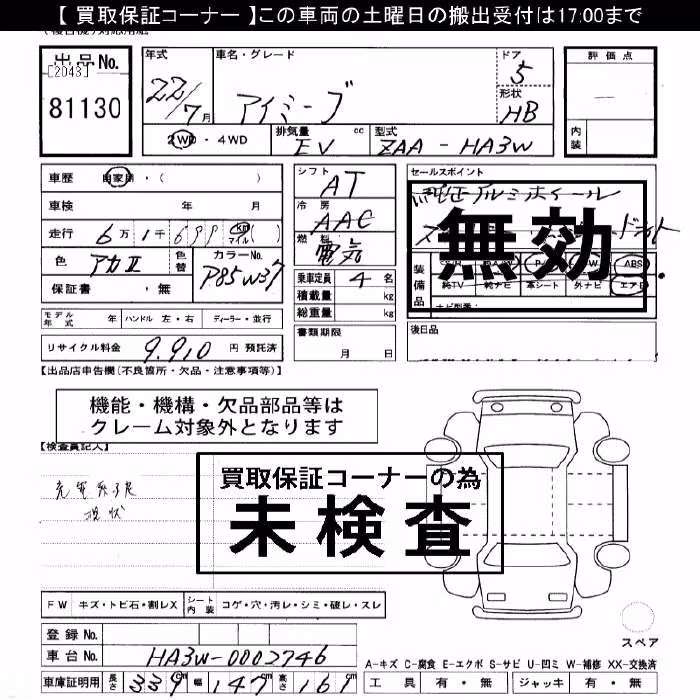 【 買取保証コーナー 】この車両の土曜日の搬出受付は17:00まで
出品No.
[2043]
81130
年式
22/7月
車名・グレード
アイミーブ
ドア
5
形状
HB
2WD・4WD
排気量 cc
EV
型式
ZAA-HA3W
評価点
内装
車歴 自家用・( )
車検 年 月
走行 6万1千699 km マイル( )
色 アカII 色替
カラーNo.
P85W37
保証書 ・無
シフト
AT
冷房
AAC
燃料
電気
乗車定員 4名
積載量 kg
総重量 kg
セールスポイント
純正アルミホイール
無効
装備品
ABS
純TV 純ナビ 革シート 外ナビ エアB
モデル年式 年 ハンドル 左・右 ディーラー・並行
リサイクル料金 9,910 円 預託済
書類期限
月 日
後日品
【出品店申告欄(不良箇所・欠品・注意事項等)】
機能・機構・欠品部品等は
クレーム対象外となります
【検査員記入】
現状
買取保証コーナーの為
未検査
FW キズ・トビ石・割レX シート内装 コゲ・穴・汚レ・シミ・破レ・スレ
登録No.
車台No. HA3W-0002746
車庫証明用 長さ 339cm 幅 147cm 高さ 161cm
スペア
A-キズ C-腐食 E-エクボ S-サビ U-凹ミ W-補修 XX-交換済
工具 有・無 ジャッキ 有・無